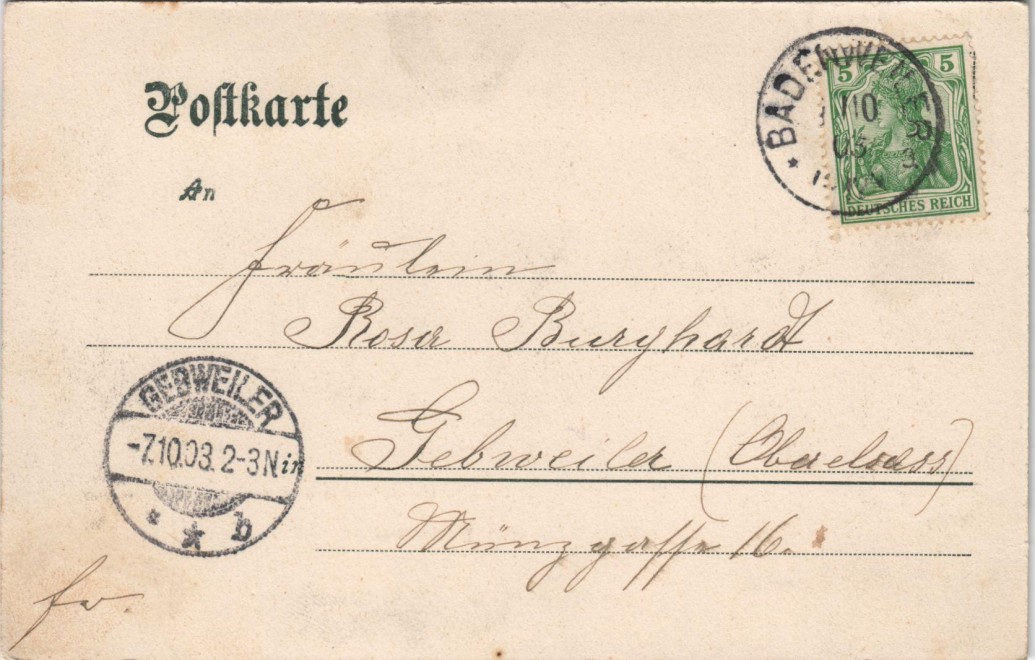 Postkarte
BADENWEILER
5 5
DEUTSCHES REICH
An
Fräulein
Rosa Burghardt
GEBWEILER
-7.10.03. 2-3N.
* b
in
Gebweiler (Oberelsass)
Münzgasse 16.
fr.